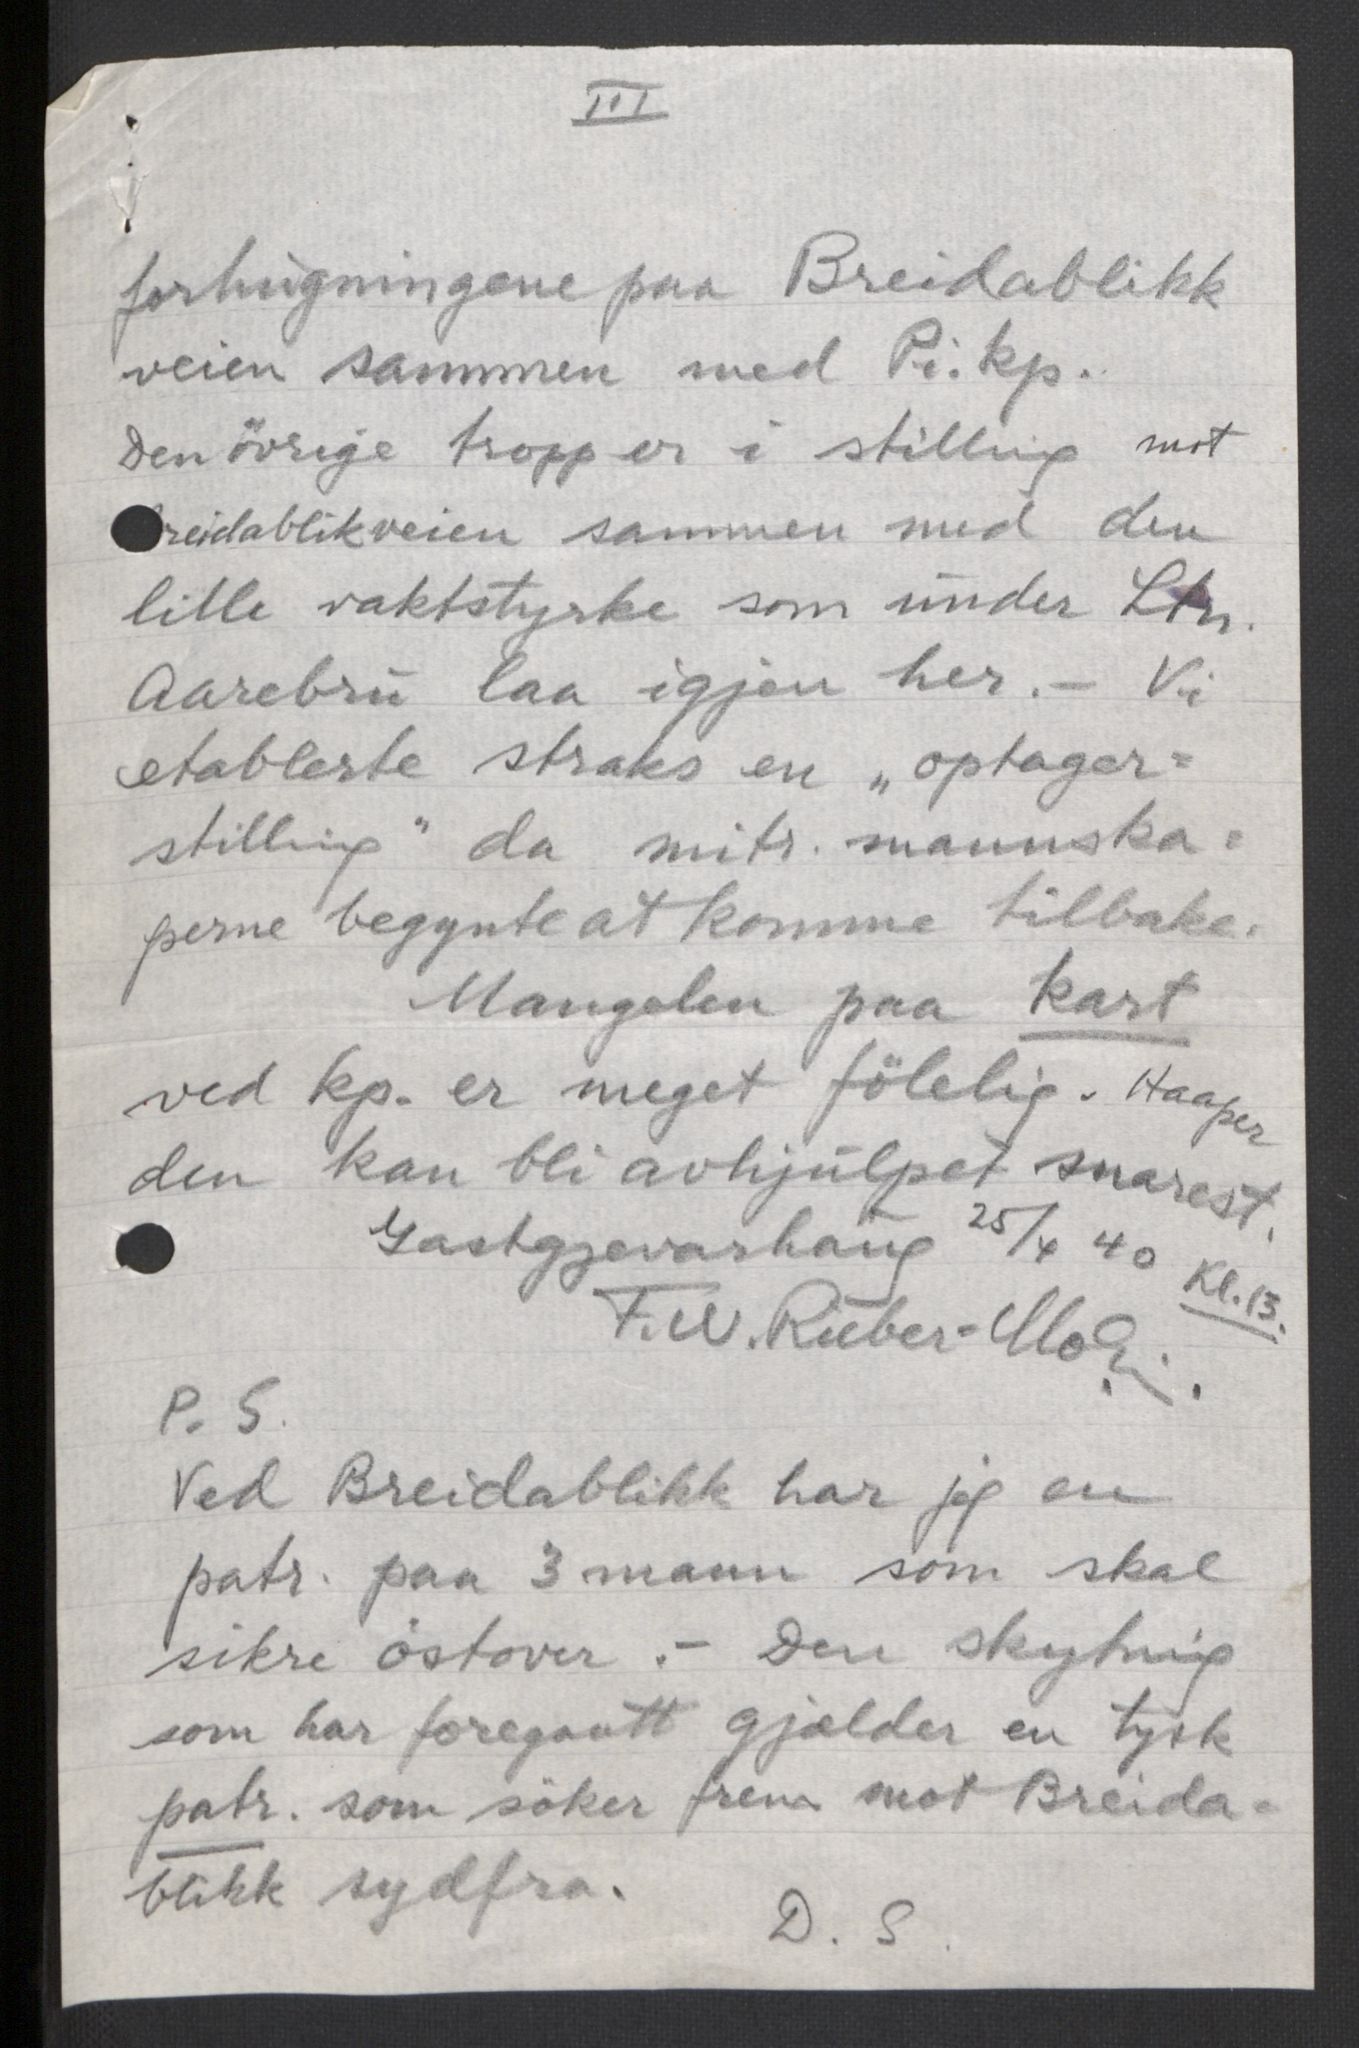 III
forhugningene paa Breidablikk
veien sammen med Pi.kp.
Den övrige tropp er i stilling mot
reidablikveien sammen med den
lille vaktstyrke som under Ltn.
Aarebru laa igjen her. – Vi
etablerte straks en „optager=
stilling" da mitr. mannska=
perne begynte at komme tilbake.
Mangelen paa kart
ved kp. er meget fölelig. Haaper
den kan bli avhjulpet snarest.
Gastgjevarhaug 25/4 40 Kl. 13.
F.W. Rieber-Mohn.
P. S.
Ved Breidablikk har jeg en
patr. paa 3 mann som skal
sikre östover. – Den skytnig
som har foregaatt gjælder en tysk
patr. som söker frem mot Breida=
blikk sydfra.
D. S.